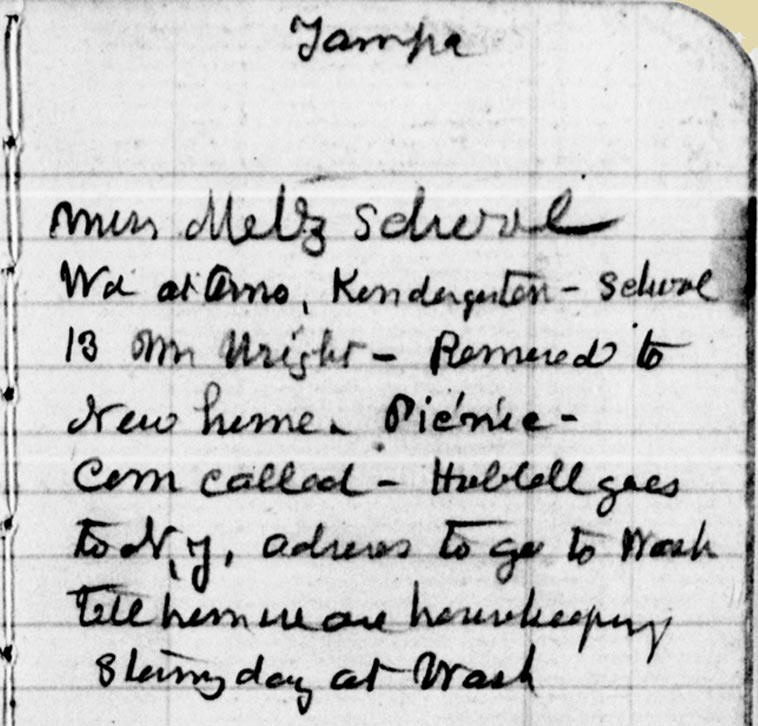 Tampa
Miss Meltz School
Wd at Amo, Kendergarten - School
13 Mr Wright - Removed to
New home. Picnic -
Com called - Hubbell goes
to N.Y, adress to go to Wash
tell him we are housekeeping
day at Wash